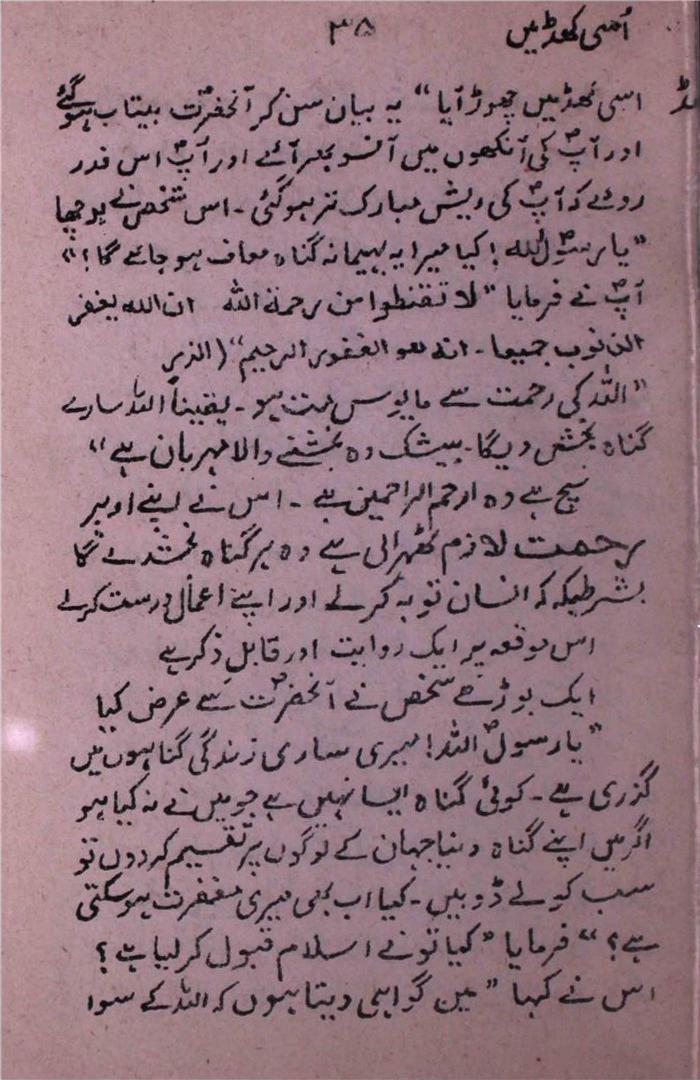 ۳۵ اُسی کھڈ میں
اسی کھڈ میں چھوڑ آیا“ یہ بیان سن کر آنحضرتؐ بیتاب ہو گئے
اور آپؐ کی آنکھوں میں آنسو بھر آئے اور آپؐ اس قدر
روئے کہ آپؐ کی ریش مبارک تر ہو گئی ۔ اس شخص نے پوچھا
”یا رسولؐ اللہ ! کیا میرا یہ بہیمانہ گناہ معاف ہو جائے گا ؟“
آپؐ نے فرمایا ”لا تقنطوا من رحمة اللہ ان اللہ یغفر
الذنوب جمیعا ۔ انہ ھو الغفور الرحیم“ (الزمر
”اللہ کی رحمت سے مایوس مت ہو ۔ یقیناً اللہ سارے
گناہ بخش دیگا ۔ بیشک وہ بخشنے والا مہربان ہے“
سچ ہے وہ ارحم الراحمین ہے ۔ اس نے اپنے اوپر
رحمت لازم ٹھہرالی ہے وہ ہر گناہ بخشدے گا
بشرطیکہ کہ انسان توبہ کرلے اور اپنے اعمال درست کرلے
اس موقعہ پر ایک روایت اور قابلِ ذکر ہے
ایک بوڑھے شخص نے آنحضرتؐ سے عرض کیا
”یا رسولؐ اللہ! میری ساری زندگی گناہوں میں
گذری ہے ۔ کوئی گناہ ایسا نہیں ہے جو میں نے نہ کیا ہو
اگر میں اپنے گناہ دنیا جہان کے لوگوں پر تقسیم کر دوں تو
سب کو لے ڈوبیں ۔ کیا اب بھی میری مغفرت ہو سکتی
ہے ؟“ فرمایا ”کیا تو نے اسلام قبول کر لیا ہے ؟
اس نے کہا ”میں گواہی دیتا ہوں کہ اللہ کے سوا